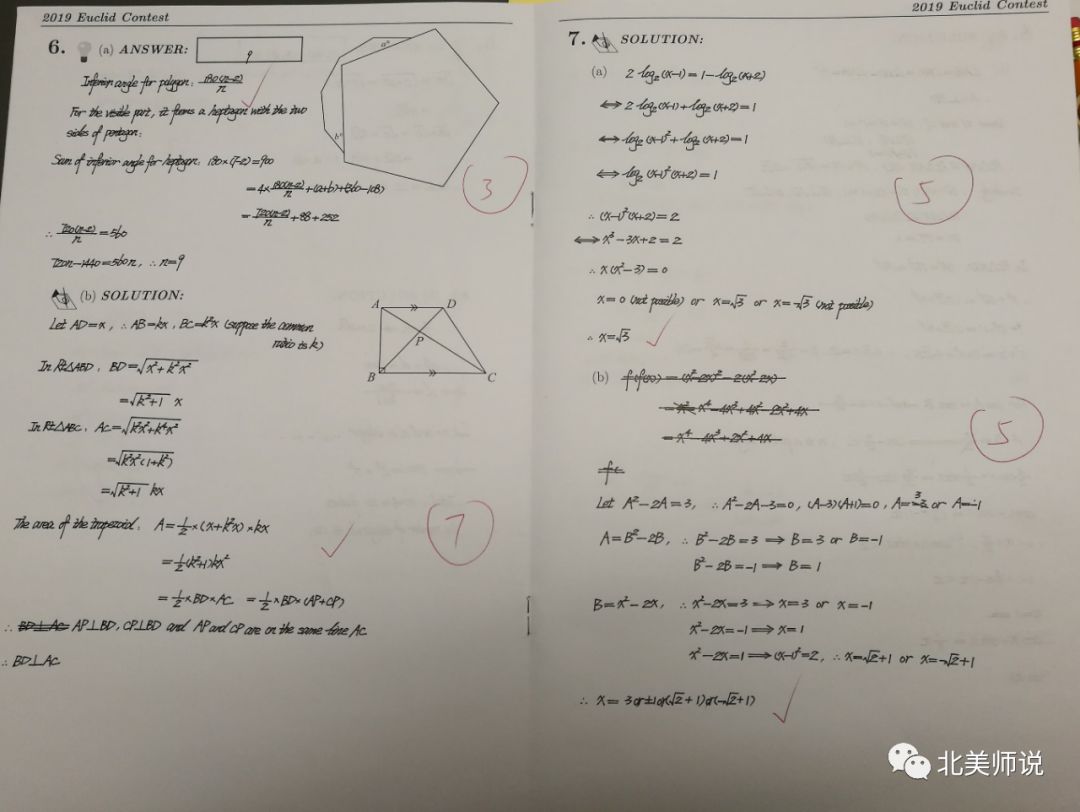 2019 Euclid Contest
6. (a) ANSWER: 9
a°
b°
Inferior angle for polygon: 180(n-2)/n
For the visible part, it forms a heptagon with the two
sides of pentagon:
Sum of inferior angle for heptagon: 180×(7-2)=900
=4×180(n-2)/n+(a+b)+(360-108)
=720(n-2)/n+88+252
∴ 720(n-2)/n=560
720n-1440=560n, ∴ n=9
3
(b) SOLUTION:
A D
P
B C
Let AD=x, ∴ AB=kx, BC=k²x (suppose the common
ratio is k)
In Rt△ABD, BD=√(x²+k²x²)
=√(k²+1) x
In Rt△ABC, AC=√(k²x²+k⁴x²)
=√(k²x²(1+k²))
=√(k²+1) kx
The area of the trapezoid: A=½×(x+k²x)×kx
=½(k²+1)kx²
=½×BD×AC =½×BD×(AP+CP)
∴ BD⊥AC AP⊥BD, CP⊥BD and AP and CP are on the same line AC
∴ BD⊥AC
7
2019 Euclid Contest
7. SOLUTION:
(a) 2·log₂(x-1)=1-log₂(x+2)
⟺ 2·log₂(x-1)+log₂(x+2)=1
⟺ log₂(x-1)²+log₂(x+2)=1
⟺ log₂(x-1)²(x+2)=1
∴ (x-1)²(x+2)=2
⟺ x³-3x+2=2
∴ x(x²-3)=0
x=0 (not possible) or x=√3 or x=-√3 (not possible)
∴ x=√3
5
(b) f(f(x))=(x²-2x)²-2(x²-2x)
=x² x⁴-4x³+4x²-2x²+4x
=x⁴-4x³+2x²+4x
5
Let A²-2A=3, ∴ A²-2A-3=0, (A-3)(A+1)=0, A=3 or A=-1
A=B²-2B, ∴ B²-2B=3 ⟹ B=3 or B=-1
B²-2B=-1 ⟹ B=1
B=x²-2x, ∴ x²-2x=3 ⟹ x=3 or x=-1
x²-2x=-1 ⟹ x=1
x²-2x=1 ⟹ (x-1)²=2, ∴ x=√2+1 or x=-√2+1
∴ x= 3 or ±1 or (√2+1) or (-√2+1)
北美师说